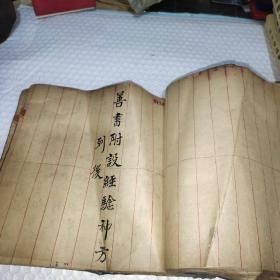 善書附設經驗神方
到後